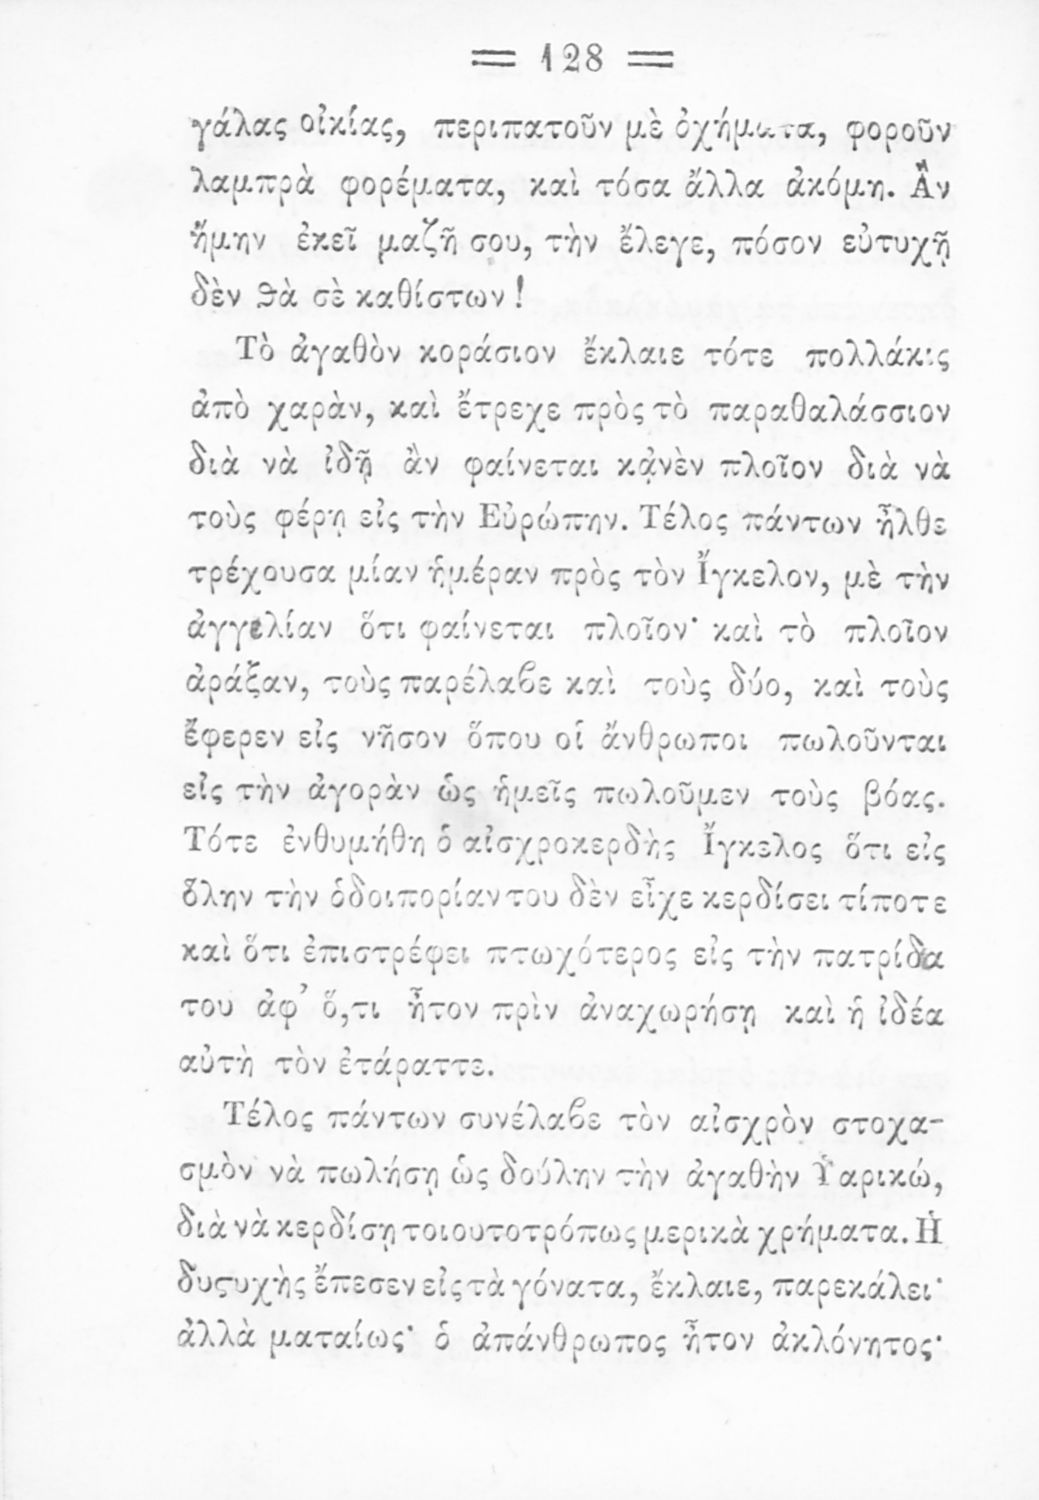 = 128 =
γάλας οἰκίας, περιπατοῦν μὲ ὀχήματα, φοροῦν
λαμπρὰ φορέματα, καὶ τόσα ἄλλα ἀκόμη. Ἂν
ἤμην ἐκεῖ μαζῆ σου, τὴν ἔλεγε, πόσον εὐτυχῆ
δὲν ϑὰ σὲ καθίστων!
Τὸ ἀγαθὸν κοράσιον ἔκλαιε τότε πολλάκις
ἀπὸ χαρὰν, καὶ ἔτρεχε πρὸς τὸ παραθαλάσσιον
διὰ νὰ ἰδῇ ἂν φαίνεται κᾀνὲν πλοῖον διὰ νὰ
τοὺς φέρῃ εἰς τὴν Εὐρώπην. Τέλος πάντων ἦλθε
τρέχουσα μίαν ἡμέραν πρὸς τὸν Ἴγκελον, μὲ τὴν
ἀγγελίαν ὅτι φαίνεται πλοῖον· καὶ τὸ πλοῖον
ἀράξαν, τοὺς παρέλαϐε καὶ τοὺς δύο, καὶ τοὺς
ἔφερεν εἰς νῆσον ὅπου οἱ ἄνθρωποι πωλοῦνται
εἰς τὴν ἀγορὰν ὡς ἡμεῖς πωλοῦμεν τοὺς βόας.
Τότε ἐνθυμήθη ὁ αἰσχροκερδὴς Ἴγκελος ὅτι εἰς
ὅλην τὴν ὁδοιπορίαν του δὲν εἶχε κερδίσει τίποτε
καὶ ὅτι ἐπιστρέφει πτωχότερος εἰς τὴν πατρίδα
του ἀφ’ ὅ,τι ἦτον πρὶν ἀναχωρήσῃ καὶ ἡ ἰδέα
αὐτὴ τὸν ἐτάραττε.
Τέλος πάντων συνέλαϐε τὸν αἰσχρὸν στοχα-
σμὸν νὰ πωλήσῃ ὡς δούλην τὴν ἀγαθὴν Ὑαρικώ,
διὰ νὰ κερδίσῃ τοιουτοτρόπως μερικὰ χρήματα. Ἡ
δυςυχὴς ἔπεσεν εἰς τὰ γόνατα, ἔκλαιε, παρεκάλει·
ἀλλὰ ματαίως· ὁ ἀπάνθρωπος ἦτον ἀκλόνητος·